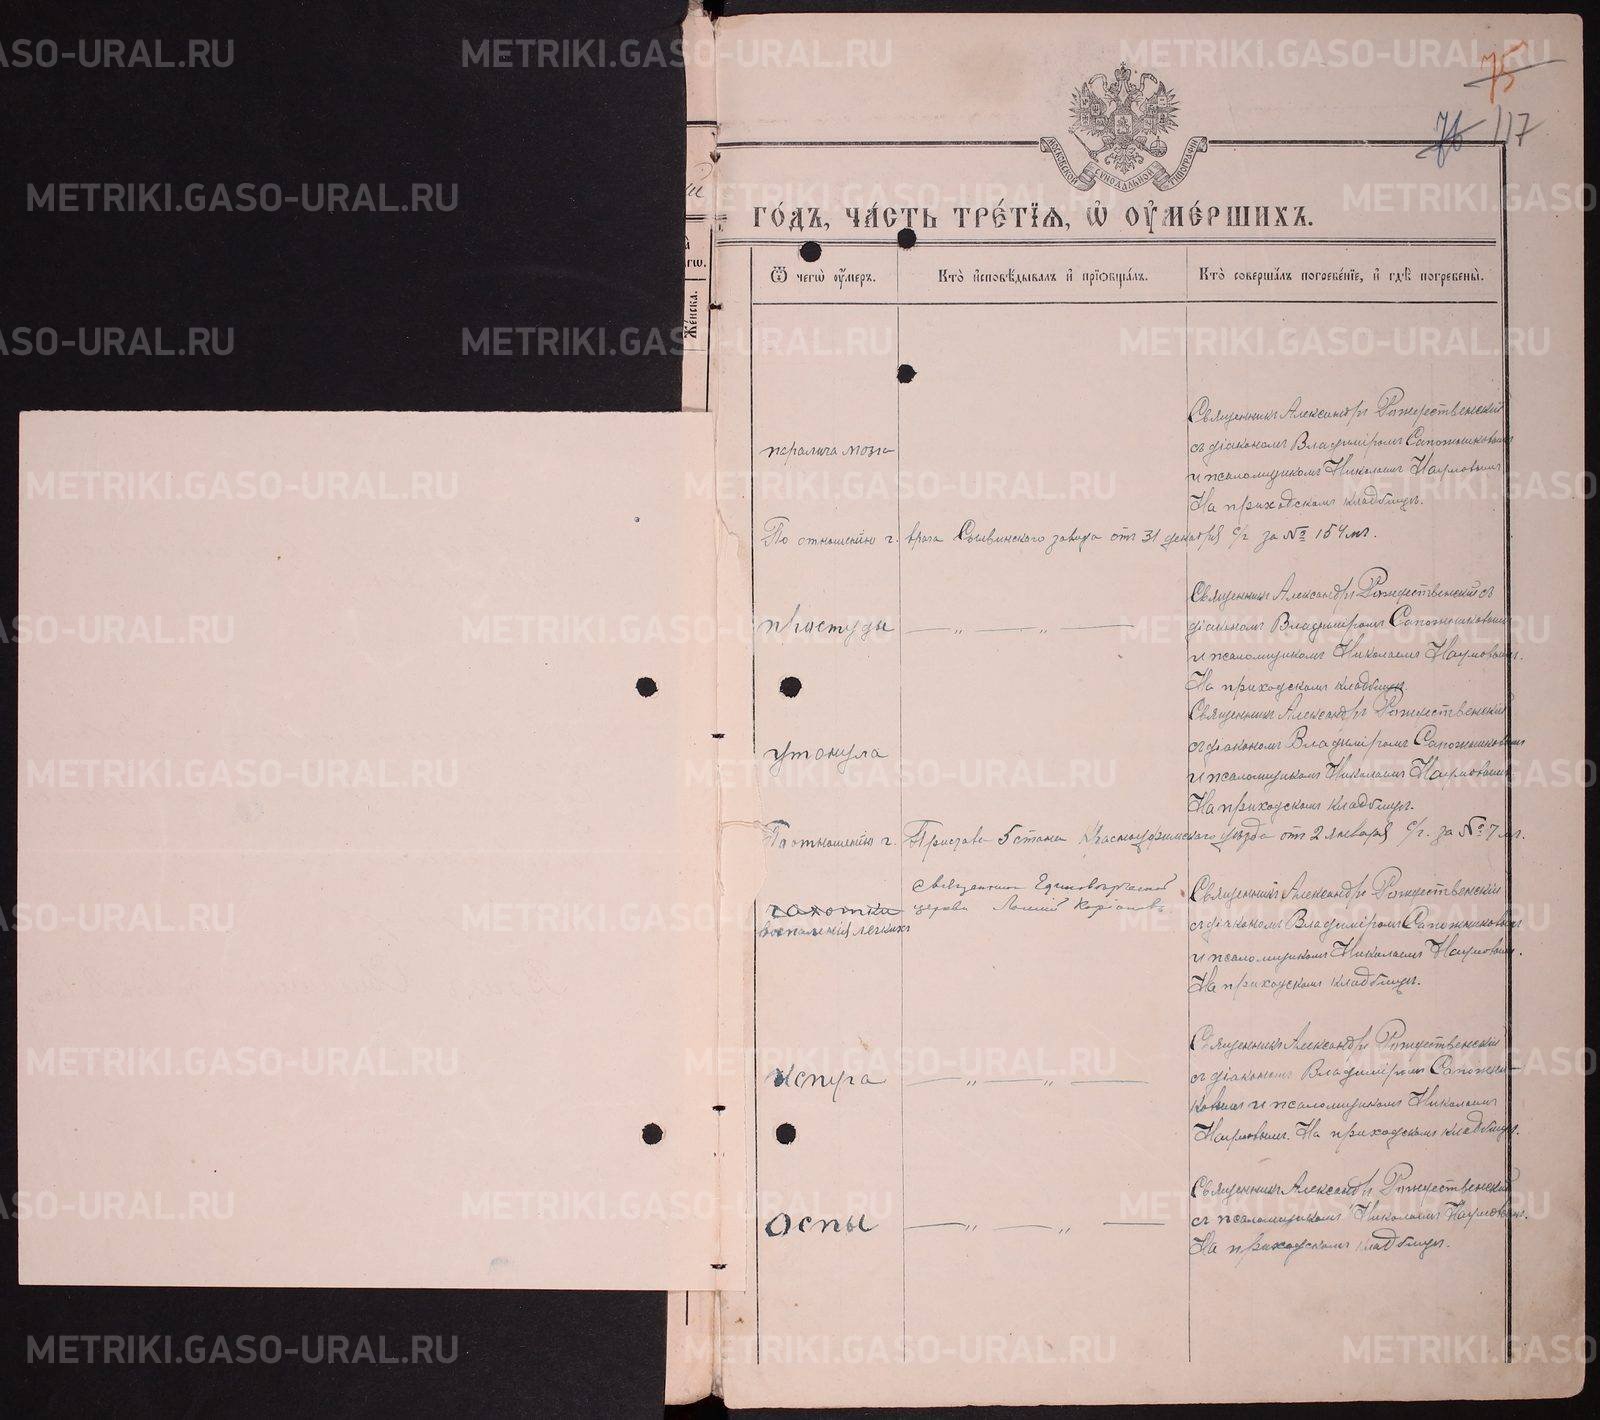 75
76 117
МОСКОВСКОЙ СѴНОДАЛЬНОЙ ТИПОГРАФІИ
ГО́ДЪ, ЧА́СТЬ ТРЕ́ТІѦ, Ѡ҆ ОУ҆МЕ́РШИХЪ.
гѡ.
Же́нска.
Ѿ чегѡ̀ оу҆́меръ.
Кто̀ и҆сповѣ́дывалъ и҆ прїѡбща́лъ.
Кто̀ соверша́лъ погребе́нїе, и҆ гдѣ̀ погребены̀.
паралича мозга
Священникъ Александръ Рождественскій
съ діакономъ Владиміромъ Сапожниковымъ
и псаломщикомъ Николаемъ Наумовымъ
На приходскомъ кладбищѣ.
По отношенію г. врача Сылвинского завода отъ 31 декабря с/г за № 154мъ.
простуды
— „ — „ —
Священникъ Александръ Рождественскій съ
діакономъ Владиміромъ Сапожниковымъ
и псаломщикомъ Николаемъ Наумовымъ.
На приходскомъ кладбищѣ.
утонула
Священникъ Александръ Рождественскій
съ діакономъ Владиміромъ Сапожниковымъ
и псаломщикомъ Николаемъ Наумовымъ.
На приходскомъ кладбищѣ.
По отношенію г. Пристава 5 стана Красноуфимского уѣзда отъ 2 января с/г. за № 7мъ.
чахотки
воспаленія легкихъ
священникъ Единовѣрческой
церкви
Священникъ Александръ Рождественскій
съ діакономъ Владиміромъ Сапожниковымъ
и псаломщикомъ Николаемъ Наумовымъ.
На приходскомъ кладбищѣ.
испуга
— „ — „ —
Священникъ Александръ Рождественскій
съ діакономъ Владиміромъ Сапожни-
ковымъ и псаломщикомъ Николаемъ
Наумовымъ. На приходскомъ кладбищѣ.
Оспы
— „ — „ —
Священникъ Александръ Рождественскій
съ псаломщикомъ Николаемъ Наумовымъ.
На приходскомъ кладбищѣ.
METRIKI.GASO-URAL.RU